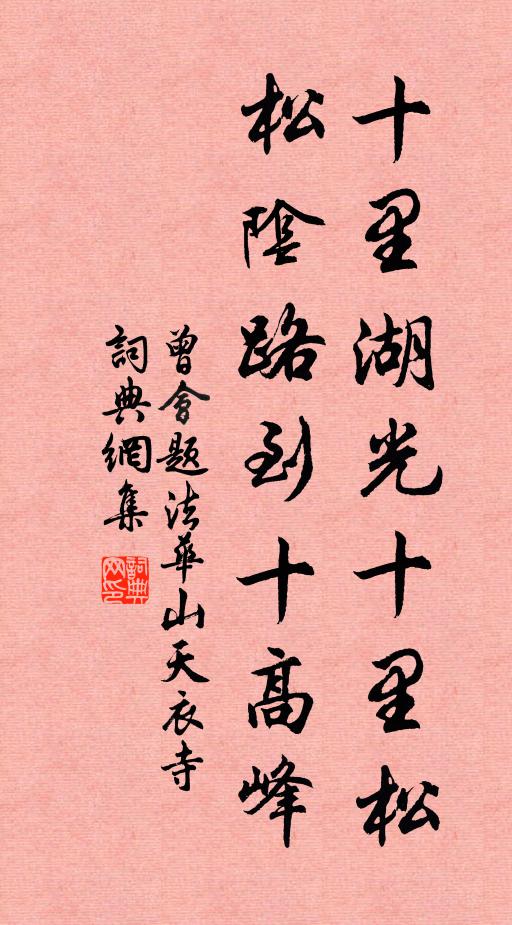 十里湖光十里松
松陰路到十高峰
曾會題法華山天衣寺
詞典網集
詞典网印